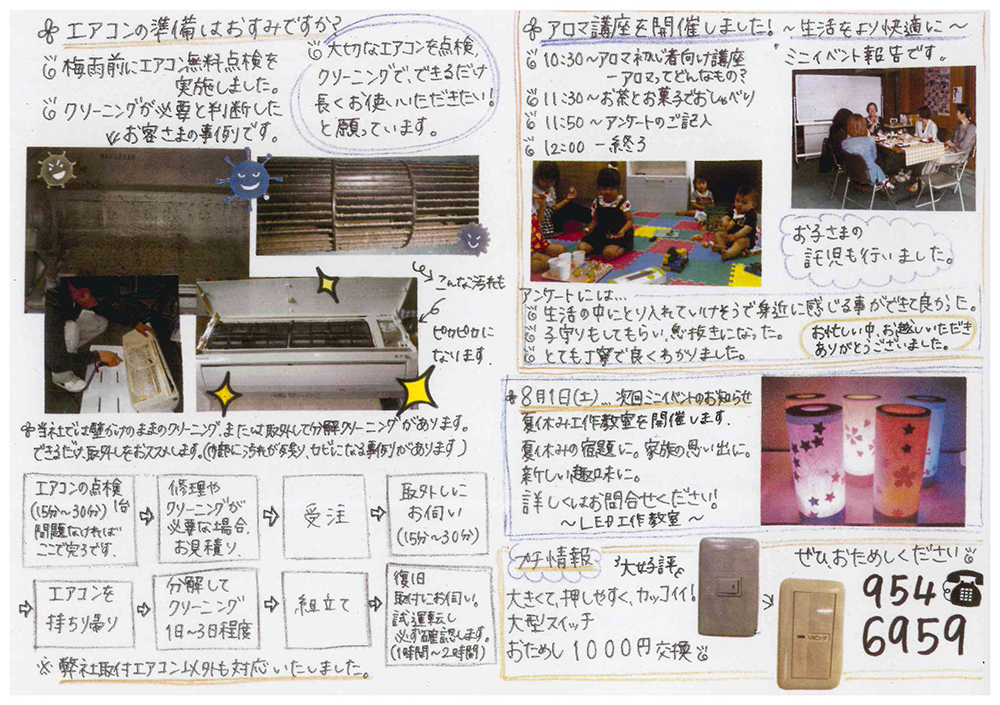 エアコンの準備はおすみですか?
梅雨前にエアコン無料点検を
実施しました。
クリーニングが必要と判断した
お客さまの事例です。
大切なエアコンを点検、
クリーニングで、できるだけ
長くお使いいただきたい!
と願っています。
こんな汚れも
ピカピカに
なります
当社では壁かけのままのクリーニング、または取外して分解クリーニングがあります。
できるだけ、取外しをおススメします。(内部に汚れが残り、カビになる事例があります)
エアコンの点検
(15分〜30分)1台
問題なければ
ここで完了です。
修理や
クリーニングが
必要な場合、
お見積り、
受注
取外しに
お伺い
(15分〜30分)
エアコンを
持ち帰り
分解して
クリーニング
1日〜3日程度
組立て
復旧
取付にお伺い。
試運転し
必ず確認します。
(1時間〜2時間)
※ 弊社取付エアコン以外も対応いたしました。
アロマ講座を開催しました! 〜生活をより快適に〜
ミニイベント報告です。
10:30〜アロマ初心者向け講座
ーアロマってどんなもの?
11:30〜お茶とお菓子でおしゃべり
11:50〜アンケートのご記入
12:00 ー終了
お子さまの
託児も行いました。
アンケートには…
生活の中にとり入れていけそうで身近に感じる事ができて良かった。
子守りもしてもらい、息抜きになった。
とても丁寧で良くわかりました。
お忙しい中、お越しいただき
ありがとうございました。
8月1日(土)…次回ミニイベントのお知らせ
夏休み工作教室を開催します.
夏休みの宿題に。家族の思い出に。
新しい趣味に。
詳しくはお問合せください!
〜LED工作教室〜
プチ情報
大好評
大きくて、押しやすく、カッコイイ!
大型スイッチ
おためし1000円交換
リビング
ぜひ、おためしください
954
6959